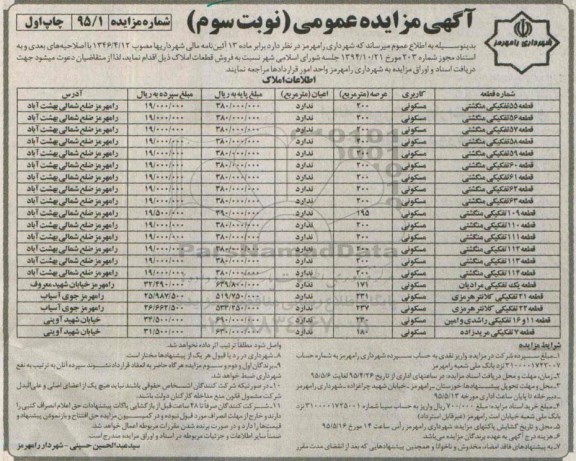 آگهی مزایده عمومی (نوبت سوم)
شماره مزایده ۹۵/۱ چاپ اول
شهرداری رامهرمز
بدینوسیله به اطلاع عموم میرساند که شهرداری رامهرمز در نظر دارد برابر ماده ۱۳ آئین‌نامه مالی شهرداریها مصوب ۱۳۴۶/۴/۱۲ با اصلاحیه‌های بعدی و به
استناد مجوز شماره ۲۰۳ مورخ ۱۳۹۴/۱۰/۲۱ جلسه شورای اسلامی شهر نسبت به فروش قطعات املاک ذیل اقدام نماید، لذا از متقاضیان دعوت میشود جهت
دریافت اسناد و اوراق مزایده به شهرداری رامهرمز واحد امور قراردادها مراجعه نمایند.
اطلاعات املاک
شماره قطعه کاربری عرصه (مترمربع) اعیان (مترمربع) مبلغ پایه به ریال مبلغ سپرده به ریال آدرس
قطعه ۵۵ تفکیکی منگشتی مسکونی ۲۰۰ ندارد ۳۸۰/۰۰۰/۰۰۰ ۱۹/۰۰۰/۰۰۰ رامهرمز ضلع شمالی بهشت آباد
قطعه ۵۶ تفکیکی منگشتی مسکونی ۲۰۰ ندارد ۳۸۰/۰۰۰/۰۰۰ ۱۹/۰۰۰/۰۰۰ رامهرمز ضلع شمالی بهشت آباد
قطعه ۵۷ تفکیکی منگشتی مسکونی ۲۰۰ ندارد ۳۸۰/۰۰۰/۰۰۰ ۱۹/۰۰۰/۰۰۰ رامهرمز ضلع شمالی بهشت آباد
قطعه ۵۸ تفکیکی منگشتی مسکونی ۲۰۰ ندارد ۳۸۰/۰۰۰/۰۰۰ ۱۹/۰۰۰/۰۰۰ رامهرمز ضلع شمالی بهشت آباد
قطعه ۵۹ تفکیکی منگشتی مسکونی ۲۰۰ ندارد ۳۸۰/۰۰۰/۰۰۰ ۱۹/۰۰۰/۰۰۰ رامهرمز ضلع شمالی بهشت آباد
قطعه ۶۰ تفکیکی منگشتی مسکونی ۲۰۰ ندارد ۳۸۰/۰۰۰/۰۰۰ ۱۹/۰۰۰/۰۰۰ رامهرمز ضلع شمالی بهشت آباد
قطعه ۶۱ تفکیکی منگشتی مسکونی ۲۰۰ ندارد ۳۸۰/۰۰۰/۰۰۰ ۱۹/۰۰۰/۰۰۰ رامهرمز ضلع شمالی بهشت آباد
قطعه ۶۲ تفکیکی منگشتی مسکونی ۲۰۰ ندارد ۳۸۰/۰۰۰/۰۰۰ ۱۹/۰۰۰/۰۰۰ رامهرمز ضلع شمالی بهشت آباد
قطعه ۶۳ تفکیکی منگشتی مسکونی ۲۰۰ ندارد ۳۸۰/۰۰۰/۰۰۰ ۱۹/۰۰۰/۰۰۰ رامهرمز ضلع شمالی بهشت آباد
قطعه ۱۰۹ تفکیکی منگشتی مسکونی ۱۹۵ ندارد ۳۹۰/۰۰۰/۰۰۰ ۱۹/۵۰۰/۰۰۰ رامهرمز ضلع شمالی بهشت آباد
قطعه ۱۱۱ تفکیکی منگشتی مسکونی ۲۰۰ ندارد ۳۸۰/۰۰۰/۰۰۰ ۱۹/۰۰۰/۰۰۰ رامهرمز ضلع شمالی بهشت آباد
قطعه ۱۱۲ تفکیکی منگشتی مسکونی ۲۰۰ ندارد ۳۸۰/۰۰۰/۰۰۰ ۱۹/۰۰۰/۰۰۰ رامهرمز ضلع شمالی بهشت آباد
قطعه ۱۱۳ تفکیکی منگشتی مسکونی ۲۰۰ ندارد ۳۸۰/۰۰۰/۰۰۰ ۱۹/۰۰۰/۰۰۰ رامهرمز ضلع شمالی بهشت آباد
قطعه ۱۱۴ تفکیکی منگشتی مسکونی ۲۰۰ ندارد ۳۸۰/۰۰۰/۰۰۰ ۱۹/۰۰۰/۰۰۰ رامهرمز ضلع شمالی بهشت آباد
قطعه یک تفکیکی مرادیان مسکونی ۱۷۱ ندارد ۶۴۹/۸۰۰/۰۰۰ ۳۲/۴۹۰/۰۰۰ رامهرمز خیابان شهید معروف
قطعه ۲۱ تفکیکی کلانتر هرمزی مسکونی ۲۳۱ ندارد ۵۱۹/۷۵۰/۰۰۰ ۲۵/۹۸۷/۵۰۰ رامهرمز جوی آسیاب
قطعه ۲۲ تفکیکی کلانتر هرمزی مسکونی ۲۳۷ ندارد ۵۳۳/۲۵۰/۰۰۰ ۲۶/۶۶۲/۵۰۰ رامهرمز جوی آسیاب
قطعه ۱۱ و ۱۶ تفکیکی راشدی و امین مسکونی ۲۳۰ ندارد ۶۹۰/۰۰۰/۰۰۰ ۳۴/۵۰۰/۰۰۰ خیابان شهید آوینی
قطعه ۷ تفکیکی مریدزاده مسکونی ۱۸۰ ندارد ۶۳۰/۰۰۰/۰۰۰ ۳۱/۵۰۰/۰۰۰ خیابان شهید آوینی
شرایط مزایده
۱ـ مبلغ سپرده شرکت در مزایده واریز نقدی به حساب سپرده شهرداری رامهرمز به شماره حساب
نزد بانک ملی شعبه رامهرمز
۲ـ زمان و محل دریافت اسناد مزایده در ساعتهای اداری از تاریخ ۹۵/۴/۲۶ لغایت ۹۵/۵/۶
۳ـ محل و مهلت تحویل پیشنهادها: خوزستان ـ رامهرمز ـ خیابان شهید چمرانزاده ـ شهرداری رامهرمز
ـ دبیرخانه تا پایان ساعت اداری مورخه ۹۵/۵/۱۳
بانک ملی شعبه خیابان امت رامهرمز (غیرقابل استرداد)
۵ـ محل و تاریخ گشایش پاکتهای مزایده: شهرداری رامهرمز رأس ساعت ۱۴ مورخ ۹۵/۵/۱۶
۶ـ هزینه درج آگهی به عهده برندگان مزایده می‌باشد.
۷ـ به پیشنهادهای فاقد امضاء، مخدوش و ناخوانا و همچنین پیشنهادهایی که بعد از انقضای مدت مقرر
واصل شود مطلقاً ترتیب اثر داده نخواهد شد.
۸ـ شهرداری در رد یا قبول هر یک از پیشنهادها مختار است.
۹ـ برندگان اول و دوم و سوم مزایده هرگاه حاضر به انعقاد قرارداد نشوند سپرده آنان به ترتیب به نفع
شهرداری ضبط خواهد شد.
ضمناً سایر اطلاعات و جزئیات مربوطه در اسناد و اوراق مزایده مندرج است.
سیدعبدالحسین حسینی ـ شهردار رامهرمز